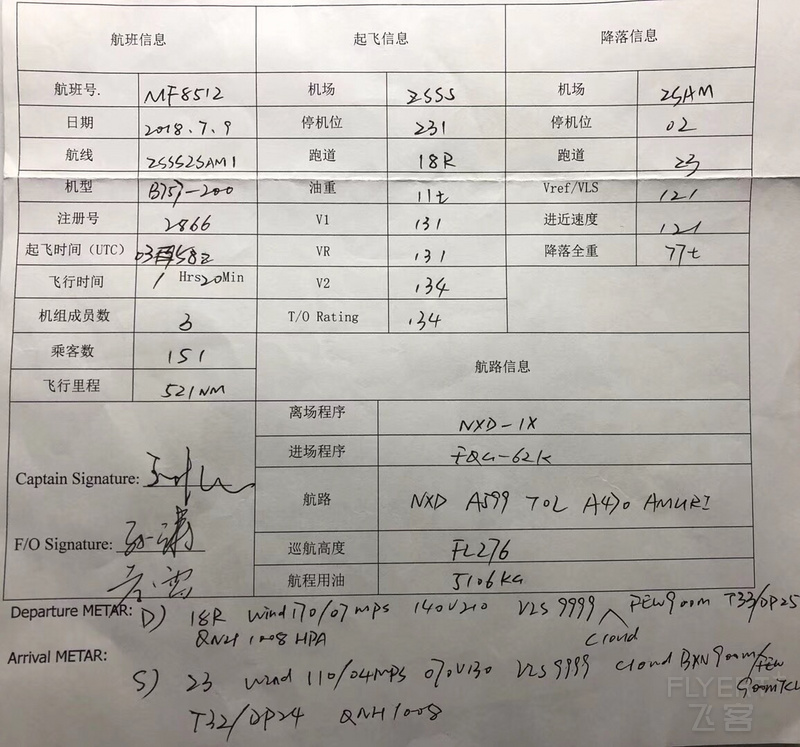 航班信息 起飞信息 降落信息
航班号. MF8512 机场 ZSSS 机场 ZSAM
日期 2018.7.9 停机位 231 停机位 02
航线 ZSSSZSAM1 跑道 18R 跑道 23
机型 B757-200 油重 11t Vref/VLS 121
注册号 2866 V1 131 进近速度 121
起飞时间（UTC） 0358Z VR 131 降落全重 77t
飞行时间 1 Hrs20Min V2 134
机组成员数 3 T/O Rating 134
乘客数 151 航路信息
飞行里程 521NM
离场程序 NXD-1X
进场程序 FQG-62K
Captain Signature:
航路 NXD A599 TOL A470 AMURI
F/O Signature:
巡航高度 FL276
航程用油 5106KG
Departure METAR: D) 18R Wind170/07mps 140V210 VIS 9999 FEW900m T33/DP25
QNH 1008 HPA cloud
Arrival METAR:
S) 23 Wind 110/04MPS 070V130 VIS 9999 cloud BKN900m/FEW
900mTCU
T32/DP24 QNH1008
FLYERT
飞客